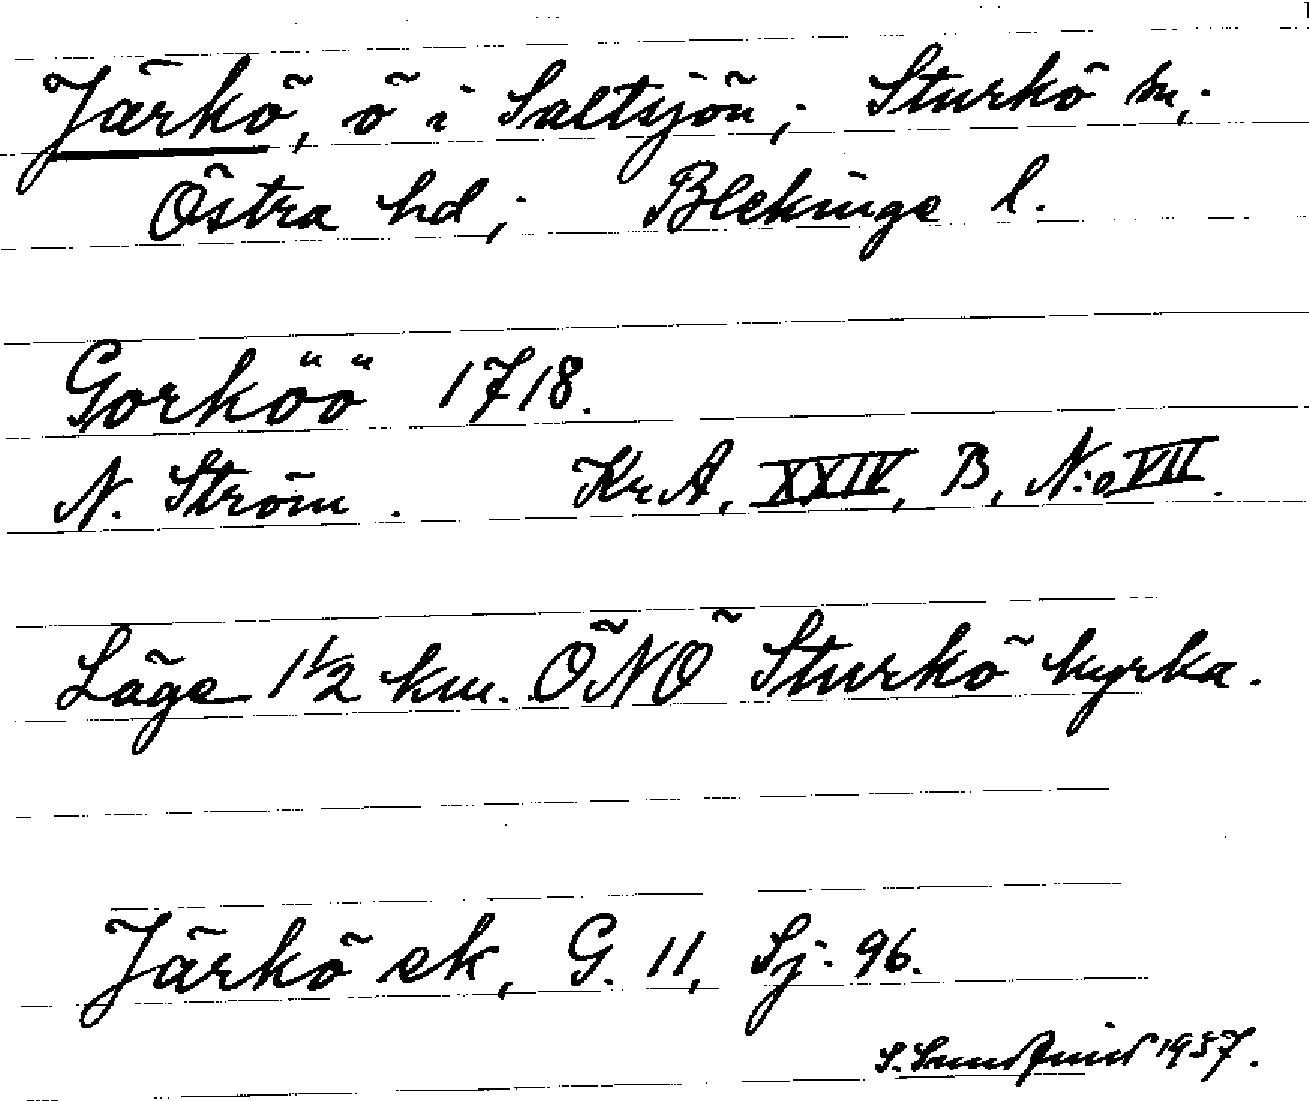 Järkö, ö i Saltsjön; Sturkö sn;
Östra hd; Blekinge l.
Gorköö 1718.
N. Ström. Kr.A, XXIV, B, N:o VII.
Läge 1 1/2 km. ÖNÖ Sturkö kyrka.
Järkö ek, G. 11, Sj. 96.
S. 1937.